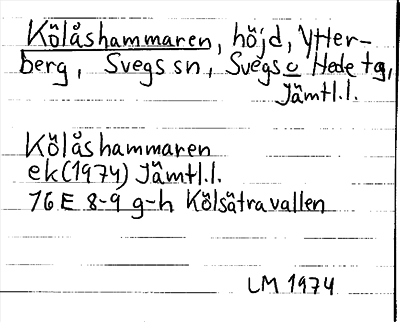 Kölåshammaren, höjd, Ytter-
berg, Svegs sn, Svegs o Hede tg,
Jämtl.l.
Kölåshammaren
ek(1974) Jämtl.l.
16E 8-9 g-h Kölsätravallen
LM 1974